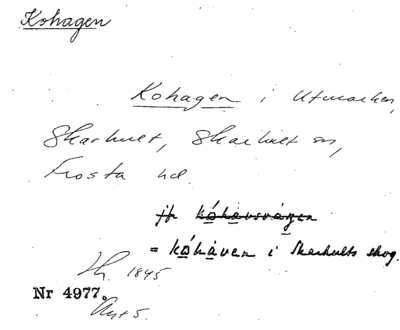 Kohagen
Kohagen i Utmarken,
Skarhult, Skarhult sn,
Frosta hd.
jfr kåhavsvägen
= kåhàven i Skarhults skog.
1845
Nr 4977.